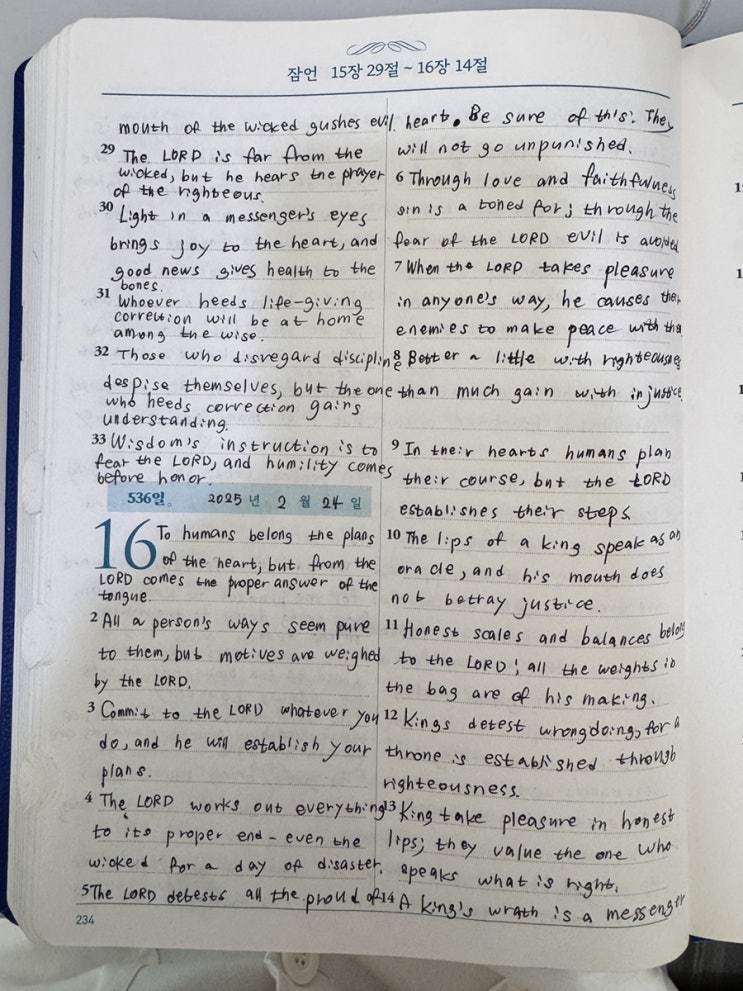 잠언 15장 29절 ~ 16장 14절
mouth of the wicked gushes evil.
29 The LORD is far from the
wicked, but he hears the prayer
of the righteous.
30 Light in a messenger's eyes
brings joy to the heart, and
good news gives health to the
bones.
31 Whoever heeds life-giving
correction will be at home
among the wise.
32 Those who disregard discipline
despise themselves, but the one
who heeds correction gains
understanding.
33 Wisdom's instruction is to
fear the LORD, and humility comes
before honor.
536일. 2025 년 2 월 24 일
16 To humans belong the plans
of the heart, but from the
LORD comes the proper answer of the
tongue.
2 All a person's ways seem pure
to them, but motives are weighed
by the LORD.
3 Commit to the LORD whatever you
do, and he will establish your
plans.
4 The LORD works out everything
to its proper end - even the
wicked for a day of disaster.
5 The LORD detests all the proud of
heart. Be sure of this: They
will not go unpunished.
6 Through love and faithfulness
sin is a toned for; through the
fear of the LORD evil is avoided
7 When the LORD takes pleasure
in anyone's way, he causes their
enemies to make peace with
8 Better a little with righteousness
than much gain with injustice
9 In their hearts humans plan
their course, but the LORD
establishes their steps.
10 The lips of a king speak as an
oracle, and his mouth does
not betray justice.
11 Honest scales and balances belong
to the LORD; all the weights in
the bag are of his making.
12 Kings detest wrongdoing, for a
throne is established through
righteousness.
13 King take pleasure in honest
lips; they value the one who
speaks what is right.
14 A king's wrath is a messenger
234